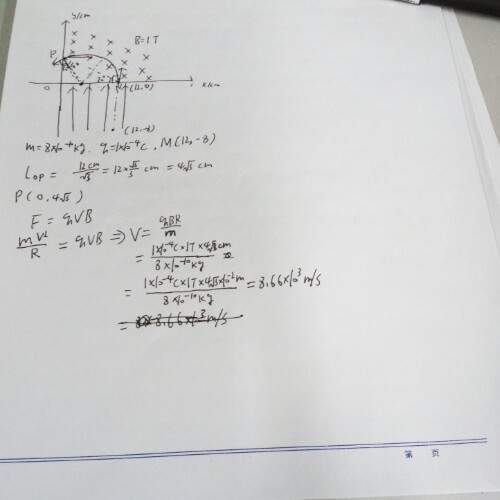 y/cm
B=1T
P
0
(12,0)
x/cm
(12,-8)
m=8×10⁻¹⁰kg. q=1×10⁻⁴C, M(12,-8)
L_OP = 12cm/√3 = 12×√3/3 cm = 4√3 cm
P(0,4√3)
F = qVB
mV²/R = qVB ⇒ V = qBR/m
= 1×10⁻⁴C×1T×4√3cm/8×10⁻¹⁰kg
= 1×10⁻⁴C×1T×4√3×10⁻²m/8×10⁻¹⁰kg = 8.66×10³m/s
= 8.66×10³m/s
第 页